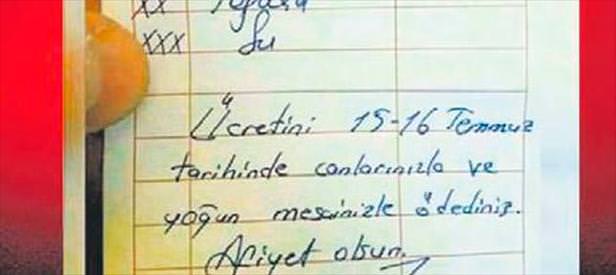 XX
XXX Su
Ücretini 15-16 Temmuz
tarihinde canlarınızla ve
yoğun mesainizle ödediniz.
Afiyet olsun.